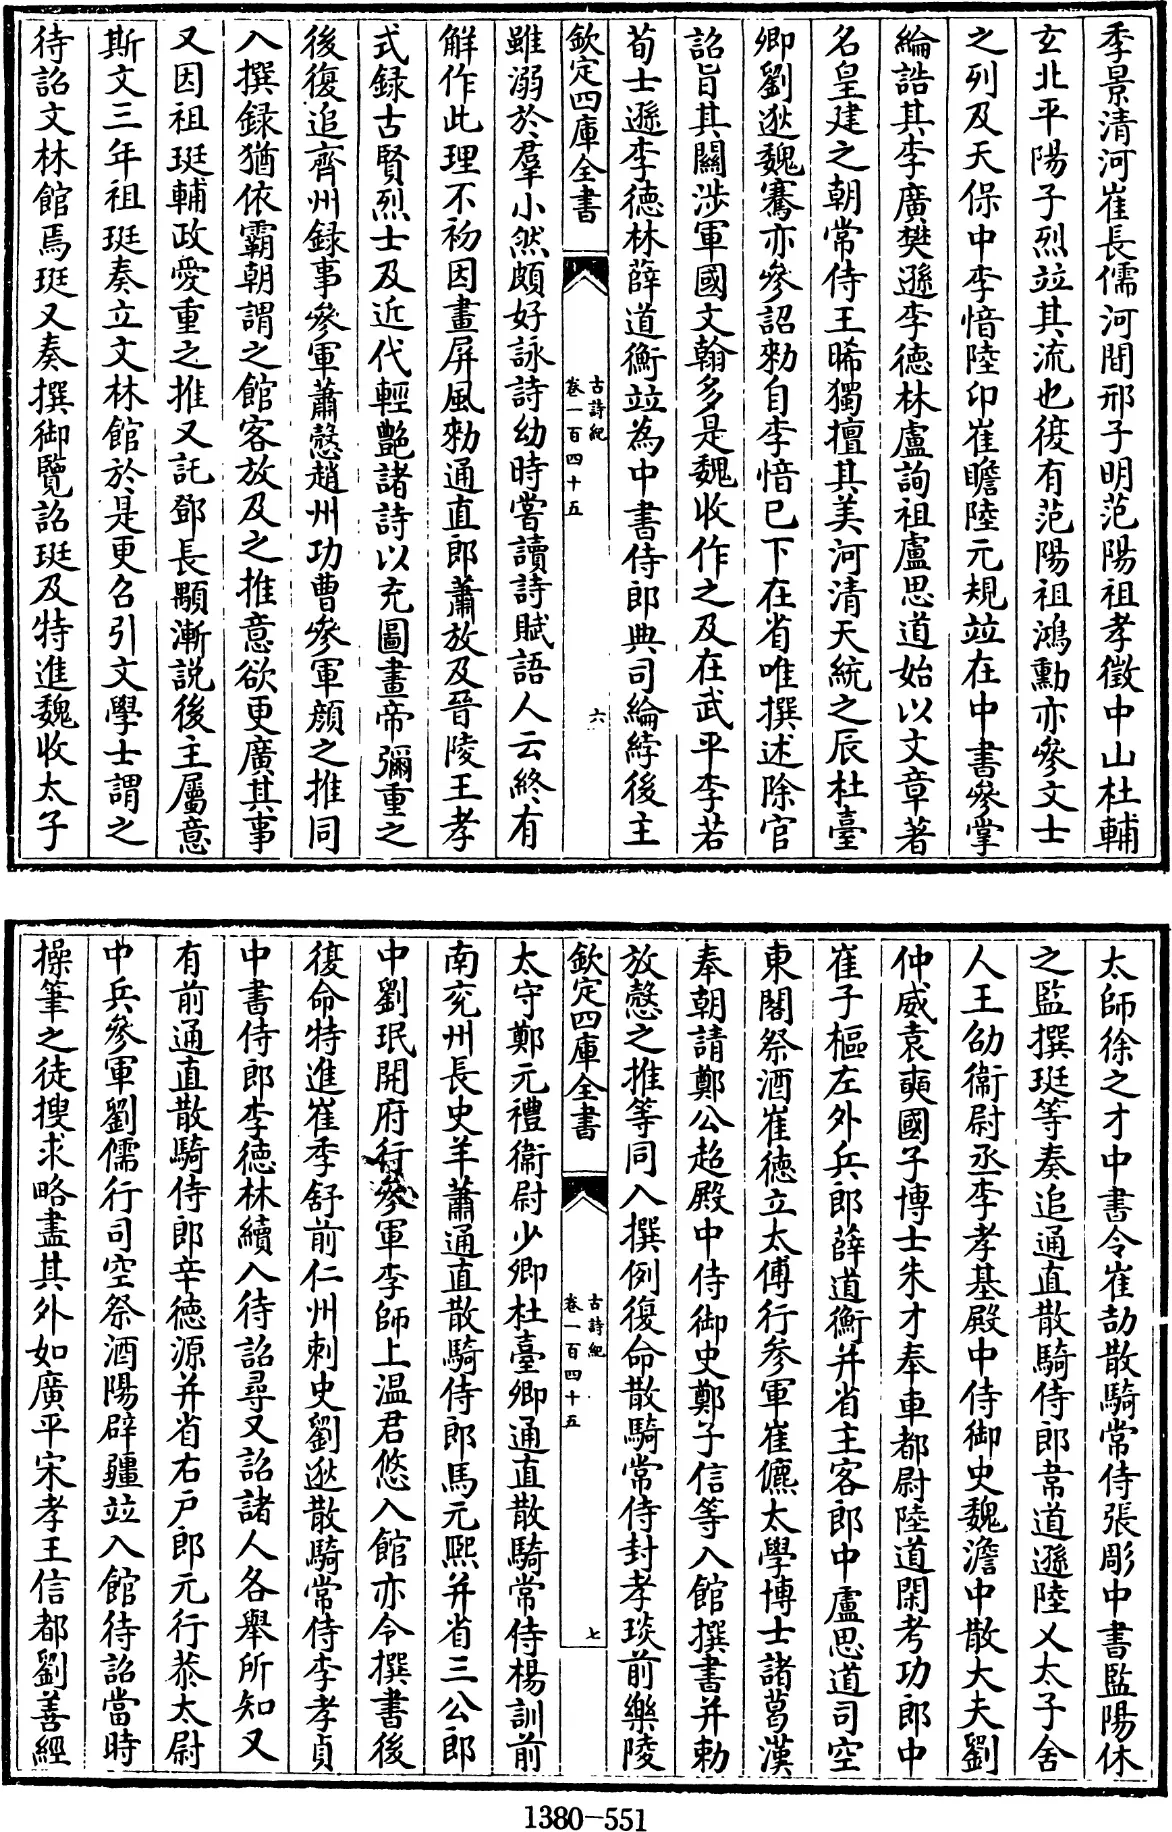 季景清河崔長儒河間邢子明范陽祖孝徵中山杜輔
玄北平陽子烈竝其流也後有范陽祖鴻勳亦參文士
之列及天保中李愔陸卬崔瞻陸元規竝在中書參掌
綸誥其李廣樊遜李德林盧詢祖盧思道始以文章著
名皇建之朝常侍王晞獨擅其美河清天統之辰杜臺
卿劉逖魏騫亦參詔勑自李愔已下在省唯撰述除官
詔旨其關涉軍國文翰多是魏收作之及在武平李若
荀士遜李德林薛道衡竝為中書侍郎典司綸綍後主
欽定四庫全書
古詩紀
卷一百四十五
六
雖溺於羣小然頗好詠詩幼時嘗讀詩賦語人云終有
解作此理不初因畫屏風勑通直郎蕭放及晉陵王孝
式録古賢烈士及近代輕艷諸詩以充圖畫帝彌重之
後復追齊州録事參軍蕭慤趙州功曹參軍顔之推同
入撰録猶依霸朝謂之館客放及之推意欲更廣其事
又因祖珽輔政愛重之推又託鄧長顒漸説後主屬意
斯文三年祖珽奏立文林館於是更召引文學士謂之
待詔文林館焉珽又奏撰御覽詔珽及特進魏收太子
太師徐之才中書令崔劼散騎常侍張彫中書監陽休
之監撰珽等奏追通直散騎侍郎韋道遜陸乂太子舍
人王劭衞尉丞李孝基殿中侍御史魏澹中散大夫劉
仲威袁奭國子博士朱才奉車都尉陸道閑考功郎中
崔子樞左外兵郎薛道衡并省主客郎中盧思道司空
東閤祭酒崔德立太傅行參軍崔儦太學博士諸葛漢
奉朝請鄭公超殿中侍御史鄭子信等入館撰書并勅
放慤之推等同入撰例復命散騎常侍封孝琰前樂陵
欽定四庫全書
古詩紀
卷一百四十五
七
太守鄭元禮衞尉少卿杜臺卿通直散騎常侍楊訓前
南兖州長史羊蕭通直散騎侍郎馬元熙并省三公郎
中劉珉開府行參軍李師上温君悠入館亦令撰書後
復命特進崔季舒前仁州刺史劉逖散騎常侍李孝貞
中書侍郎李德林續入待詔尋又詔諸人各舉所知又
有前通直散騎侍郎辛德源并省右户郎元行恭太尉
中兵參軍劉儒行司空祭酒陽辟疆竝入館待詔當時
操筆之徒搜求略盡其外如廣平宋孝王信都劉善經
1380-551